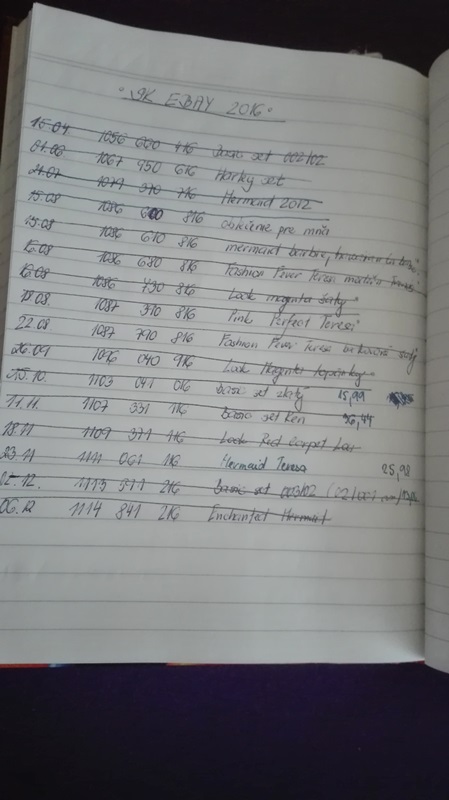 "SK EBAY 2016"
15.04 1056 600 416 Basic set 002/02
01.06 1067 950 616 Harley set
21.07 1079 310 716 Mermaid 2012
15.08 1086 600 816 oblečenie pre mňa
15.08 1086 610 816 mermaid barbie,
16.08 1086 680 816 Fashion Fever Teresa
16.08 1086 730 816 Look magenta šaty
18.08 1087 310 816 Pink Perfect Teresa
22.08 1087 790 816 Fashion Fever Teresa
26.09 1096 040 916 Look Magenta topánky
15.10. 1103 041 016 basic set zlatý 15,99
11.11. 1107 331 116 basic set Ken 36,44
18.11 1109 371 116 Look Red Carpet
23.11 1111 061 116 Mermaid Teresa 25,98
02.12. 1113 511 216 Basic set 003/02
06.12 1114 841 216 Enchanted Mermaid